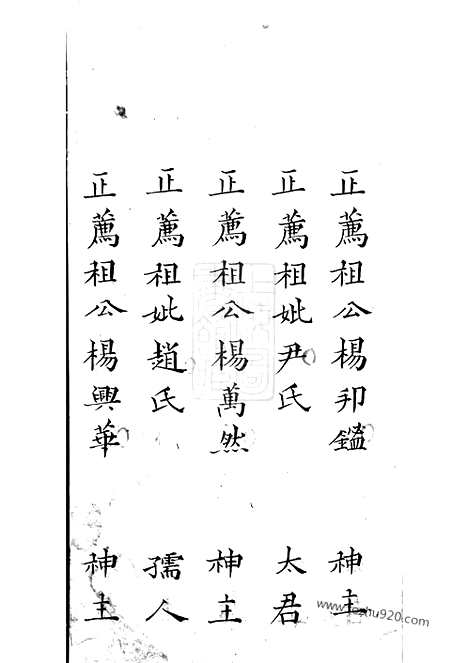 正薦祖公楊卯鎰 神主
正薦祖妣尹氏 太君
正薦祖公楊萬然 神主
正薦祖妣趙氏 孺人
正薦祖公楊興華 神主
www.fozhu920.com